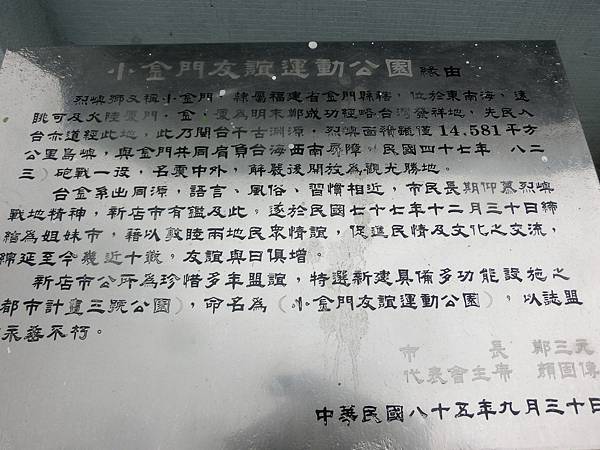 小金門友誼運動公園 緣由
烈嶼鄉又稱小金門，隸屬福建省金門縣轄，位於東南海，遠
眺可及大陸廈門，金、廈為明末鄭成功經略台灣發祥地，先民入
台亦道經此地，此乃閩台千古淵源，烈嶼面積雖僅14.581平方
公里島嶼，與金門共同肩負台海西南屏障，民國四十七年 八二
三）砲戰一役，名震中外，解嚴後開放為觀光勝地。
台金系出同源，語言、風俗、習慣相近，市民長期仰慕烈嶼
戰地精神，新店市有鑑及此，遂於民國七十七年十二月三十日締
結為姐妹市，藉以敦睦兩地民眾情誼，促進民情及文化之交流，
綿延至今幾近十載，友誼與日俱增。
新店市公所為珍惜多年盟誼，特選新建具備多功能設施之
都市計畫三號公園），命名為（小金門友誼運動公園），以誌盟
永誌不朽。
市 長 鄭三元
代表會主席 顏固傳
中華民國八十五年九月三十日